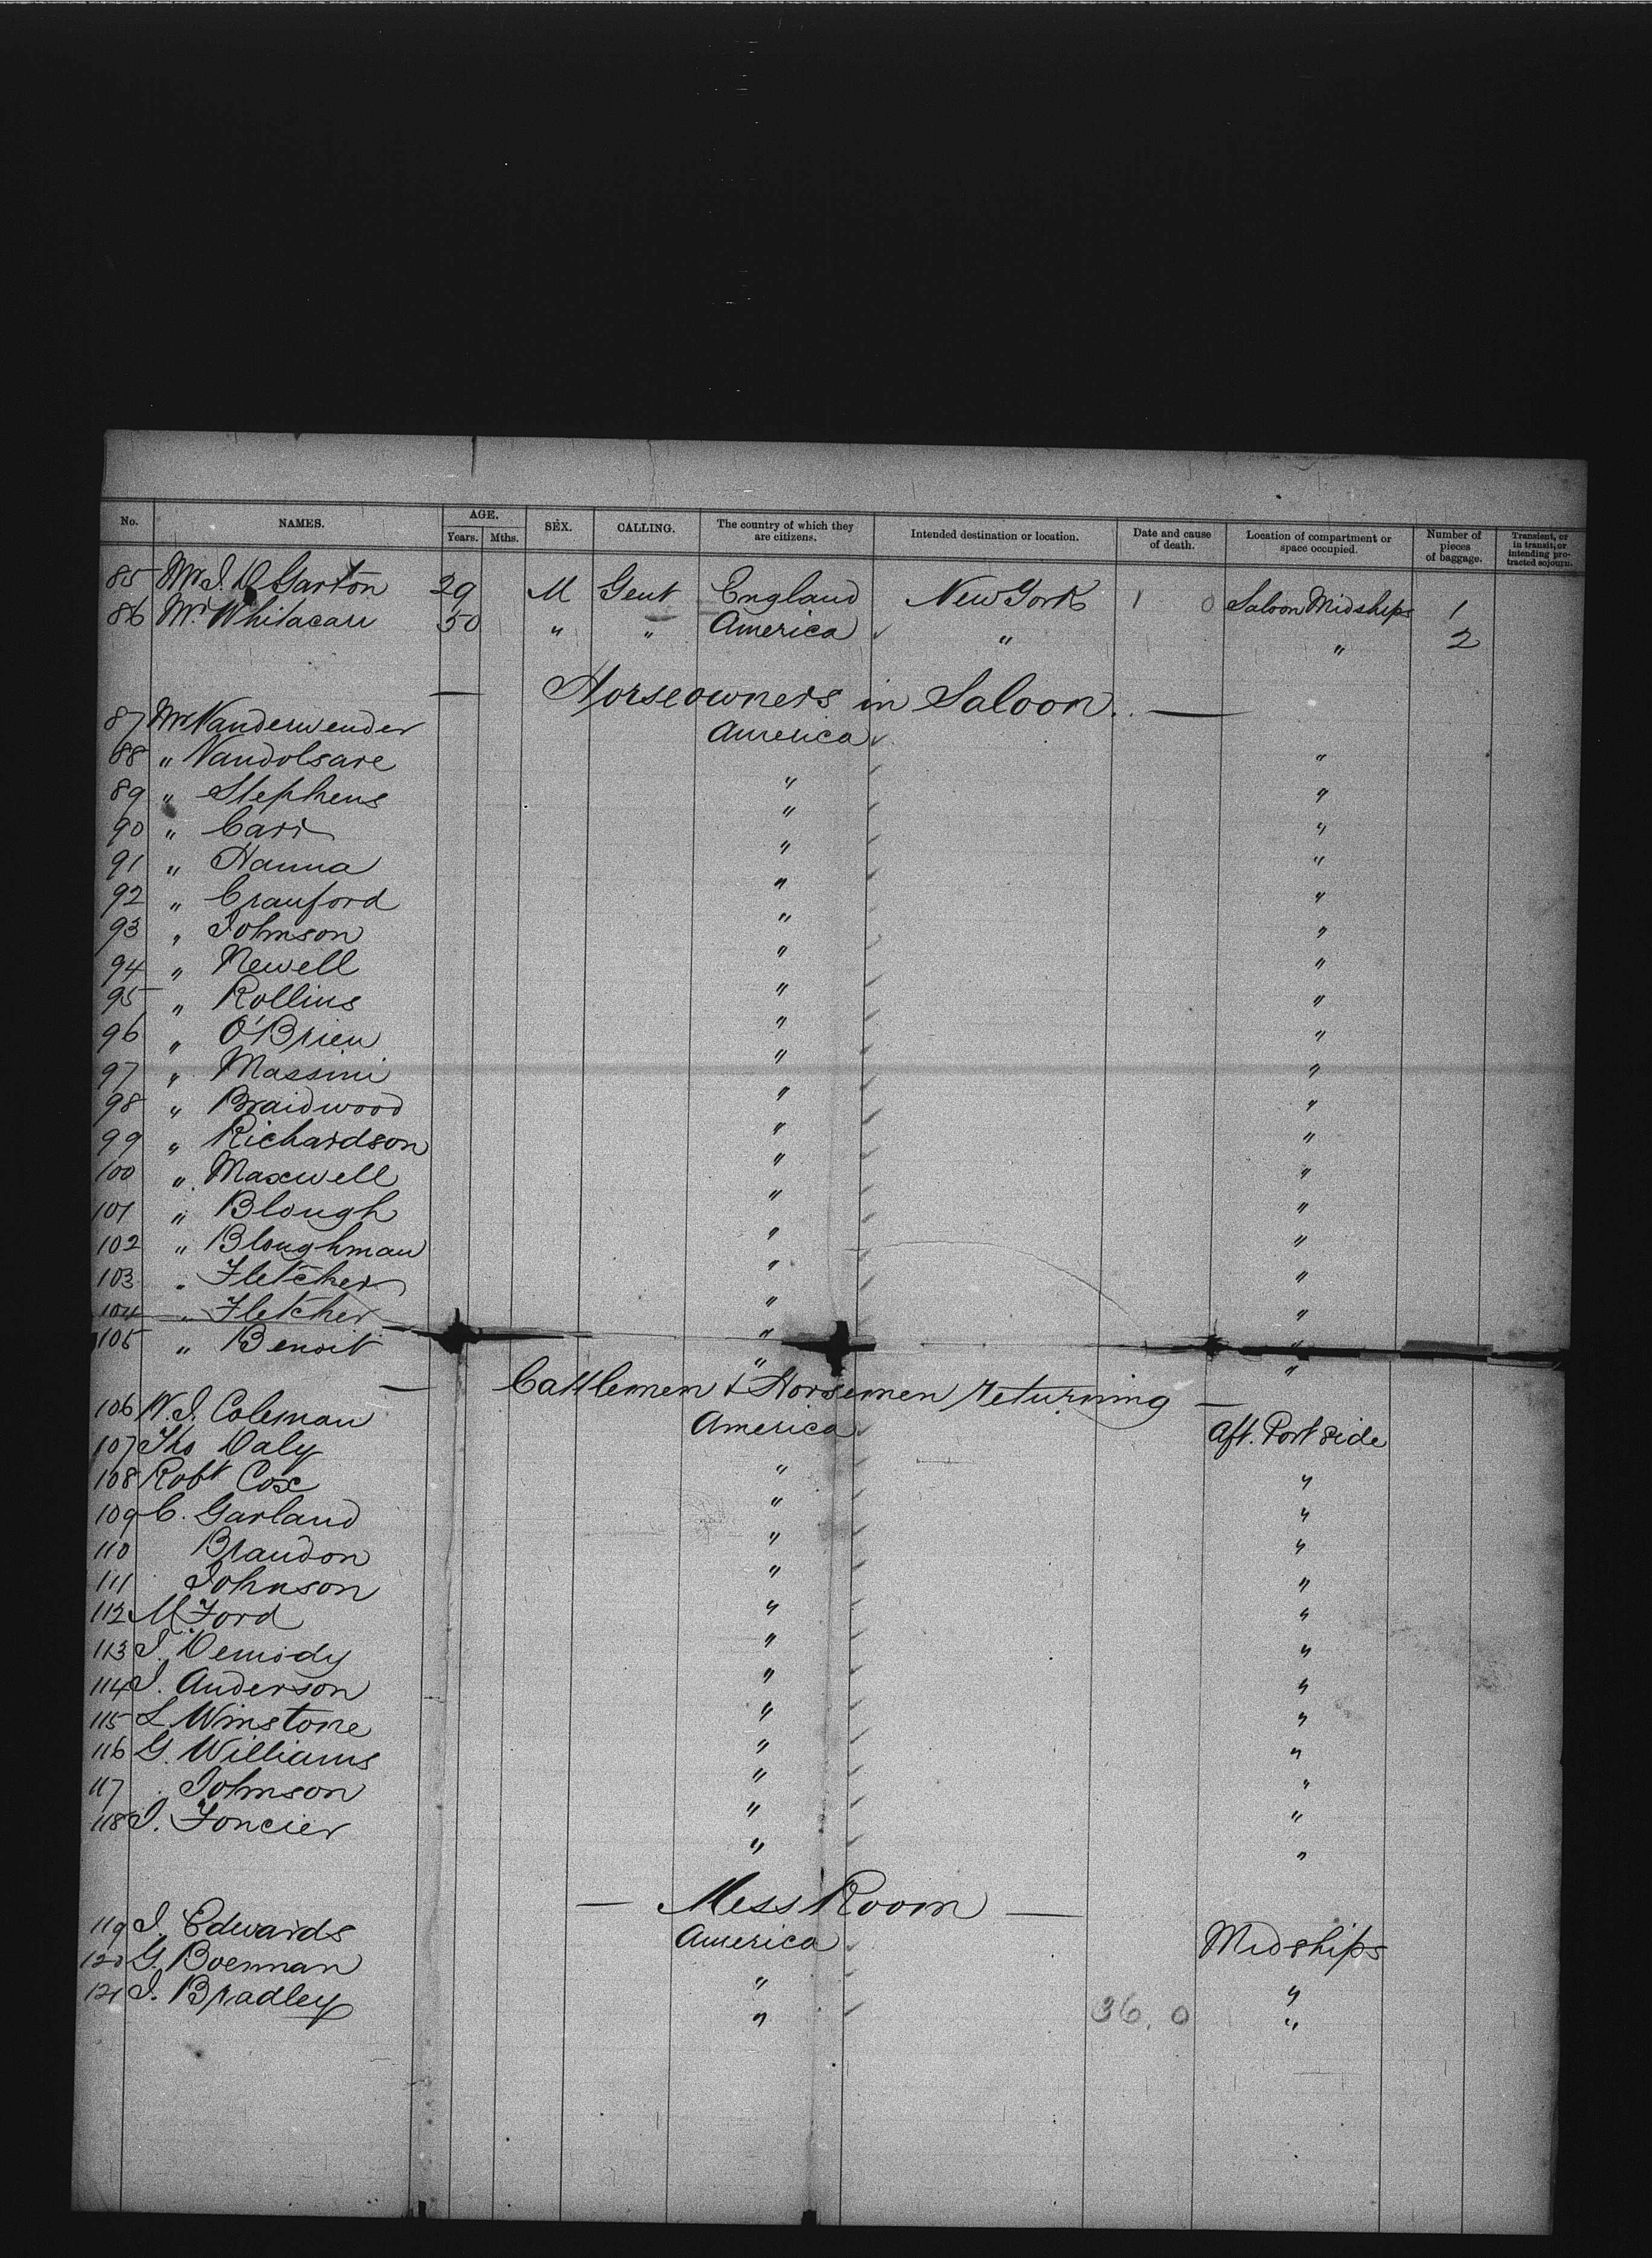 No. NAMES. AGE. Years. Mths. SEX. CALLING. The country of which they are citizens. Intended destination or location. Date and cause of death. Location of compartment or space occupied. Number of pieces of baggage. Transient, or in transit, or intending protracted sojourn.
85 Mr. J. D. Garton 29 M Gent England New York 1 0 Saloon Midships 1
86 Mr. Whitacar 50 " " America " " 2
— Horseowners in Saloon. —
87 Mr Vanderwender America "
88 " Vandolsare " "
89 " Stephens " "
90 " Carr " "
91 " Hanna " "
92 " Cranford " "
93 " Johnson " "
94 " Newell " "
95 " Rollins " "
96 " O'Brien " "
97 " Massini " "
98 " Braidwood " "
99 " Richardson " "
100 " Maxwell " "
101 " Blough " "
102 " Bloughman " "
103 " Fletcher " "
104 " Fletcher " "
105 " Benoit " "
— Cattlemen & Horsemen returning —
106 W. J. Coleman America Aft. Port side
107 Tho Daly " "
108 Robt Cox " "
109 C. Garland " "
110 Brandon " "
111 Johnson " "
112 M. Ford " "
113 J. " "
114 J. Anderson " "
115 L. Winstone " "
116 G. Williams " "
117 Johnson " "
118 J. Foncier " "
— Mess Room —
119 J. Edwards America Midships
120 G. Boenman " "
121 J. Bradley " 36. 0 "